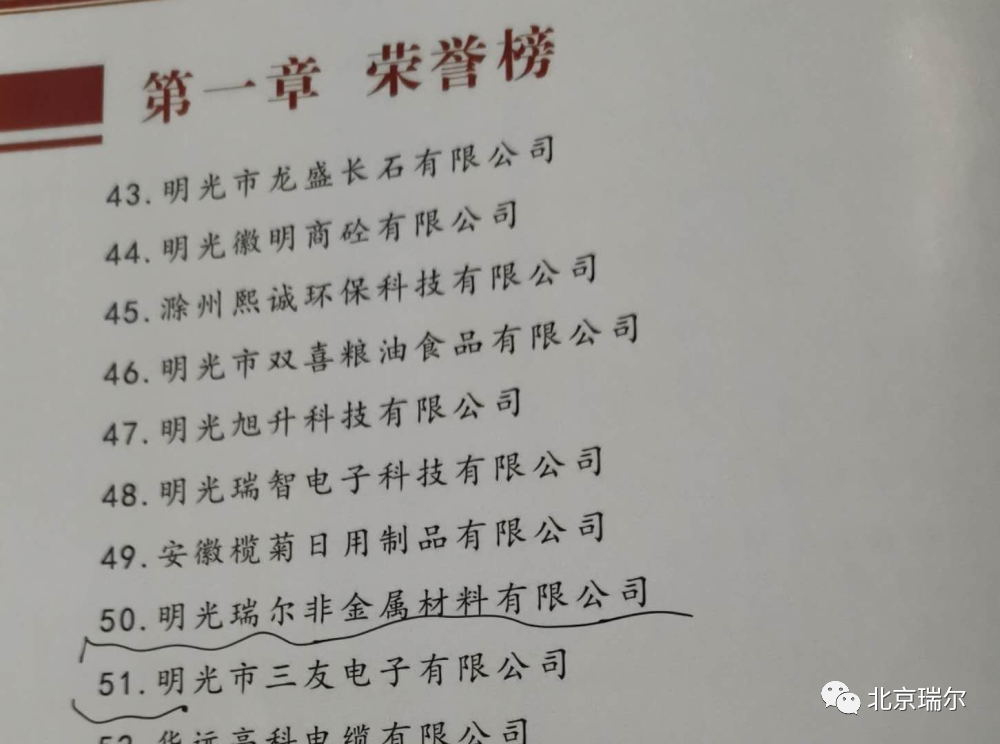 第一章 荣誉榜
43.明光市龙盛长石有限公司
44.明光徽明商砼有限公司
45.滁州熙诚环保科技有限公司
46.明光市双喜粮油食品有限公司
47.明光旭升科技有限公司
48.明光瑞智电子科技有限公司
49.安徽榄菊日用制品有限公司
50.明光瑞尔非金属材料有限公司
51.明光市三友电子有限公司
52.华远高科电缆有限公司
北京瑞尔